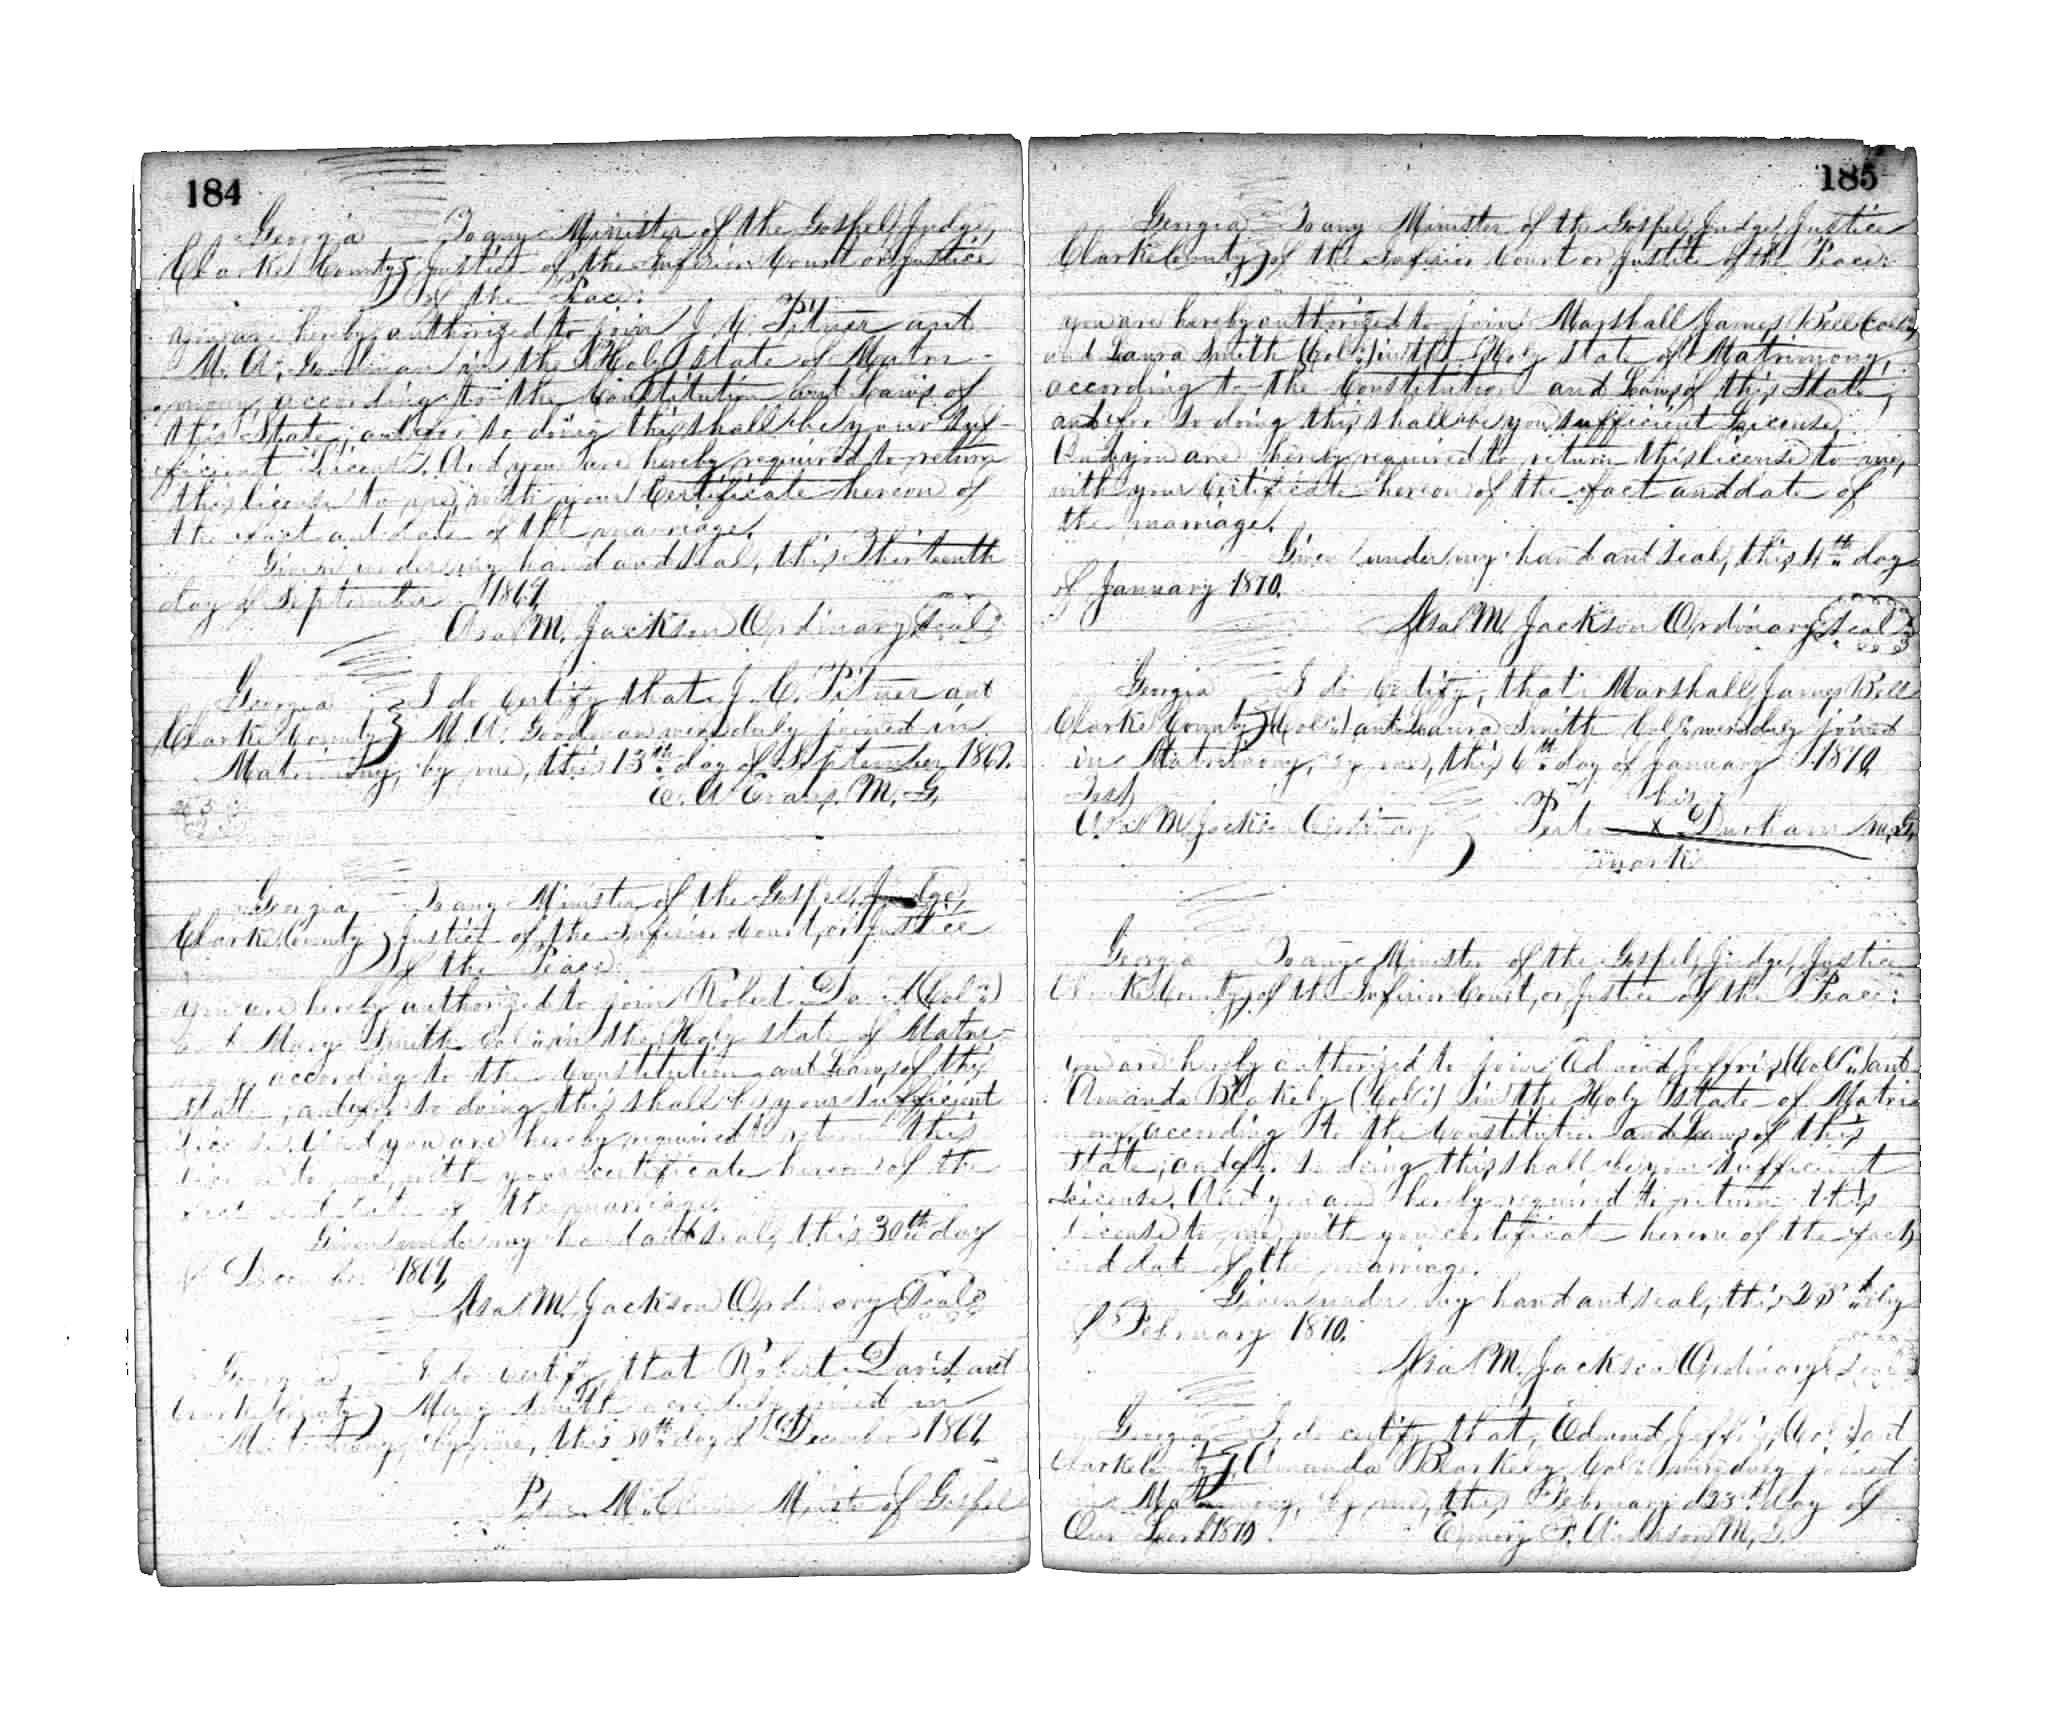 184
Georgia To any Minister of the Gospel, Judge,
Clarke County } Justice of the Inferior Court or Justice
of the Peace:
you are hereby authorized to join J. C. Pitner and
M. A. Goodman in the Holy state of Matri-
mony, according to the Constitution and Laws of
this State; and for so doing this shall be your suf-
ficient License. And you are hereby required to return
this license to me, with your Certificate hereon of
the fact and date of the marriage.
Given under my hand and seal, this Thirteenth
day of September 1869.
Asa M. Jackson Ordinary Seal
Georgia } I do certify that J. C. Pitner and
Clarke County } M. A. Goodman were duly joined in
Matrimony, by me, this 13th day of September 1869.
C. A. Evans. M. G.
Georgia, To any Minister of the Gospel, Judge,
Clarke County } Justice of the Inferior Court, or Justice
of the Peace:
you are hereby authorized to join Robert David (Cold)
and Mary Smith Cold in the Holy state of Matri-
mony according to the Constitution and Laws of this
State; and for so doing this shall be your sufficient
License. And you are hereby required to return this
license to me, with your certificate hereon of the
fact and date of the marriage.
Given under my hand and seal, this 30th day
of December 1869,
Asa M. Jackson Ordinary Seal
Georgia, I do certify that Robert David and
Clarke County } Mary Smith were duly joined in
Matrimony, by me, this 30th day of December 1869,
Minister of Gospel
185
Georgia To any Minister of the Gospel, Judge, Justice
Clarke County } of the Inferior Court or Justice of the Peace:
you are hereby authorized to join Marshall James Bell (Cold),
and Laura Smith (Cold) in the Holy state of Matrimony,
according to the Constitution and Laws of this State;
and for so doing this shall be you sufficient License
And you are hereby required to return this license to me,
with your Certificate hereon of the fact and date of
the marriage.
Given under my hand and seal, this 4th day
of January 1870.
Asa M. Jackson Ordinary Seal
Georgia I do Certify, that Marshall James Bell
Clarke County } (Cold) and Laura Smith Cold were duly joined
in Matrimony, by me, this 6th day of January 1870.
Test his
Asa M Jackson Ordinary } Peter x Durham M. G.
mark
Georgia To any Minister of the Gospel, Judge, Justice
Clarke County } of the Inferior Court, or Justice of the Peace:
you are hereby authorized to join Edmund Jeffries (Cold) and
Amanda Blakely (Cold) in the Holy state of Matri
mony, according to the Constitution and Laws of this
State; and for so doing this shall be your sufficient
License. And you are hereby required to return this
license to me, with you certificate hereon of the fact
and date of the marriage.
Given under my hand and seal, this 23d day
of February 1870.
Asa M. Jackson Ordinary Seal
Georgia I, do certify that, Edmund Jeffries, (Cold) and
Clarke County } Amanda Blarkeley Cold were duly joined
in Matrimony, by me, this February 23d day of
Our Lord 1870. Emory F. Anderson M. G.